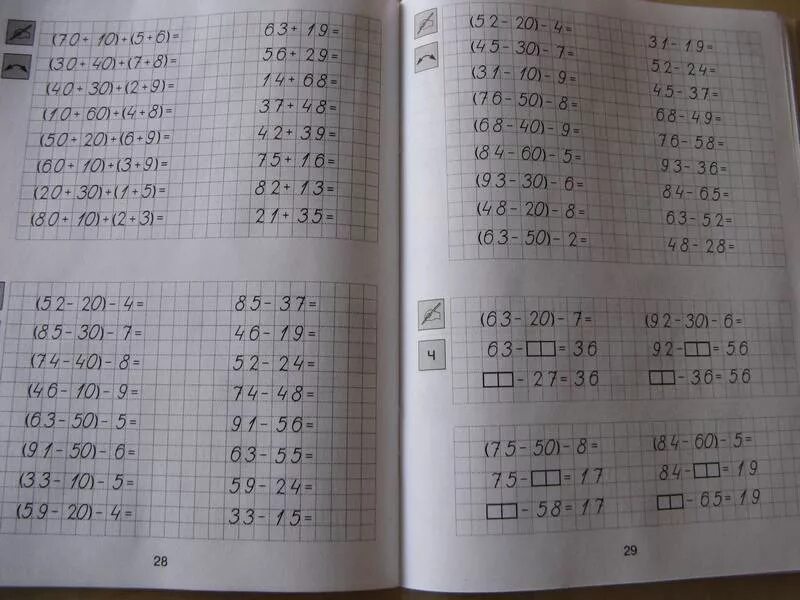 (70 + 10) + (5 + 6) =
(30 + 40) + (7 + 8) =
(40 + 30) + (2 + 9) =
(10 + 60) + (4 + 8) =
(50 + 20) + (6 + 9) =
(60 + 10) + (3 + 9) =
(20 + 30) + (1 + 5) =
(80 + 10) + (2 + 3) =
63 + 19 =
56 + 29 =
14 + 68 =
37 + 48 =
42 + 39 =
75 + 16 =
82 + 13 =
21 + 35 =
(52 - 20) - 4 =
(85 - 30) - 7 =
(74 - 40) - 8 =
(46 - 10) - 9 =
(63 - 50) - 5 =
(91 - 50) - 6 =
(33 - 10) - 5 =
(59 - 20) - 4 =
85 - 37 =
46 - 19 =
52 - 24 =
74 - 48 =
91 - 56 =
63 - 55 =
59 - 24 =
33 - 15 =
28
(52 - 20) - 4 =
(45 - 30) - 7 =
(31 - 10) - 9 =
(76 - 50) - 8 =
(68 - 40) - 9 =
(84 - 60) - 5 =
(93 - 30) - 6 =
(48 - 20) - 8 =
(63 - 50) - 2 =
31 - 19 =
52 - 24 =
45 - 37 =
68 - 49 =
76 - 58 =
93 - 36 =
84 - 65 =
63 - 52 =
48 - 28 =
Ч
(63 - 20) - 7 =
63 - □□ = 36
□□ - 27 = 36
(92 - 30) - 6 =
92 - □□ = 56
□□ - 36 = 56
(75 - 50) - 8 =
75 - □□ = 17
□□ - 58 = 17
(84 - 60) - 5 =
84 - □□ = 19
□□ - 65 = 19
29